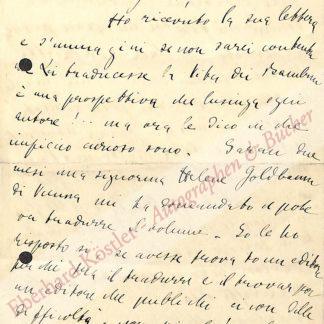 Ho ricevuto la sua lettera
e s'immagini se non sarei contenta
se Lei traducesse la Vita dei Bambini
è una prospettiva che lusinga ogni
autore!... ma ora le dico in che
impiccio curioso sono. Saran due
mesi una signorina Helene Goldbaum
di Vienna mi ha domandato se pote
va tradurre il volume. Io le ho
risposto si se avesse trovato un editore
perchè tra il tradurre e il trovar poi
un editore che pubblichi ci son delle
difficoltà
Eberhard Köstler - Autographen & Bücher